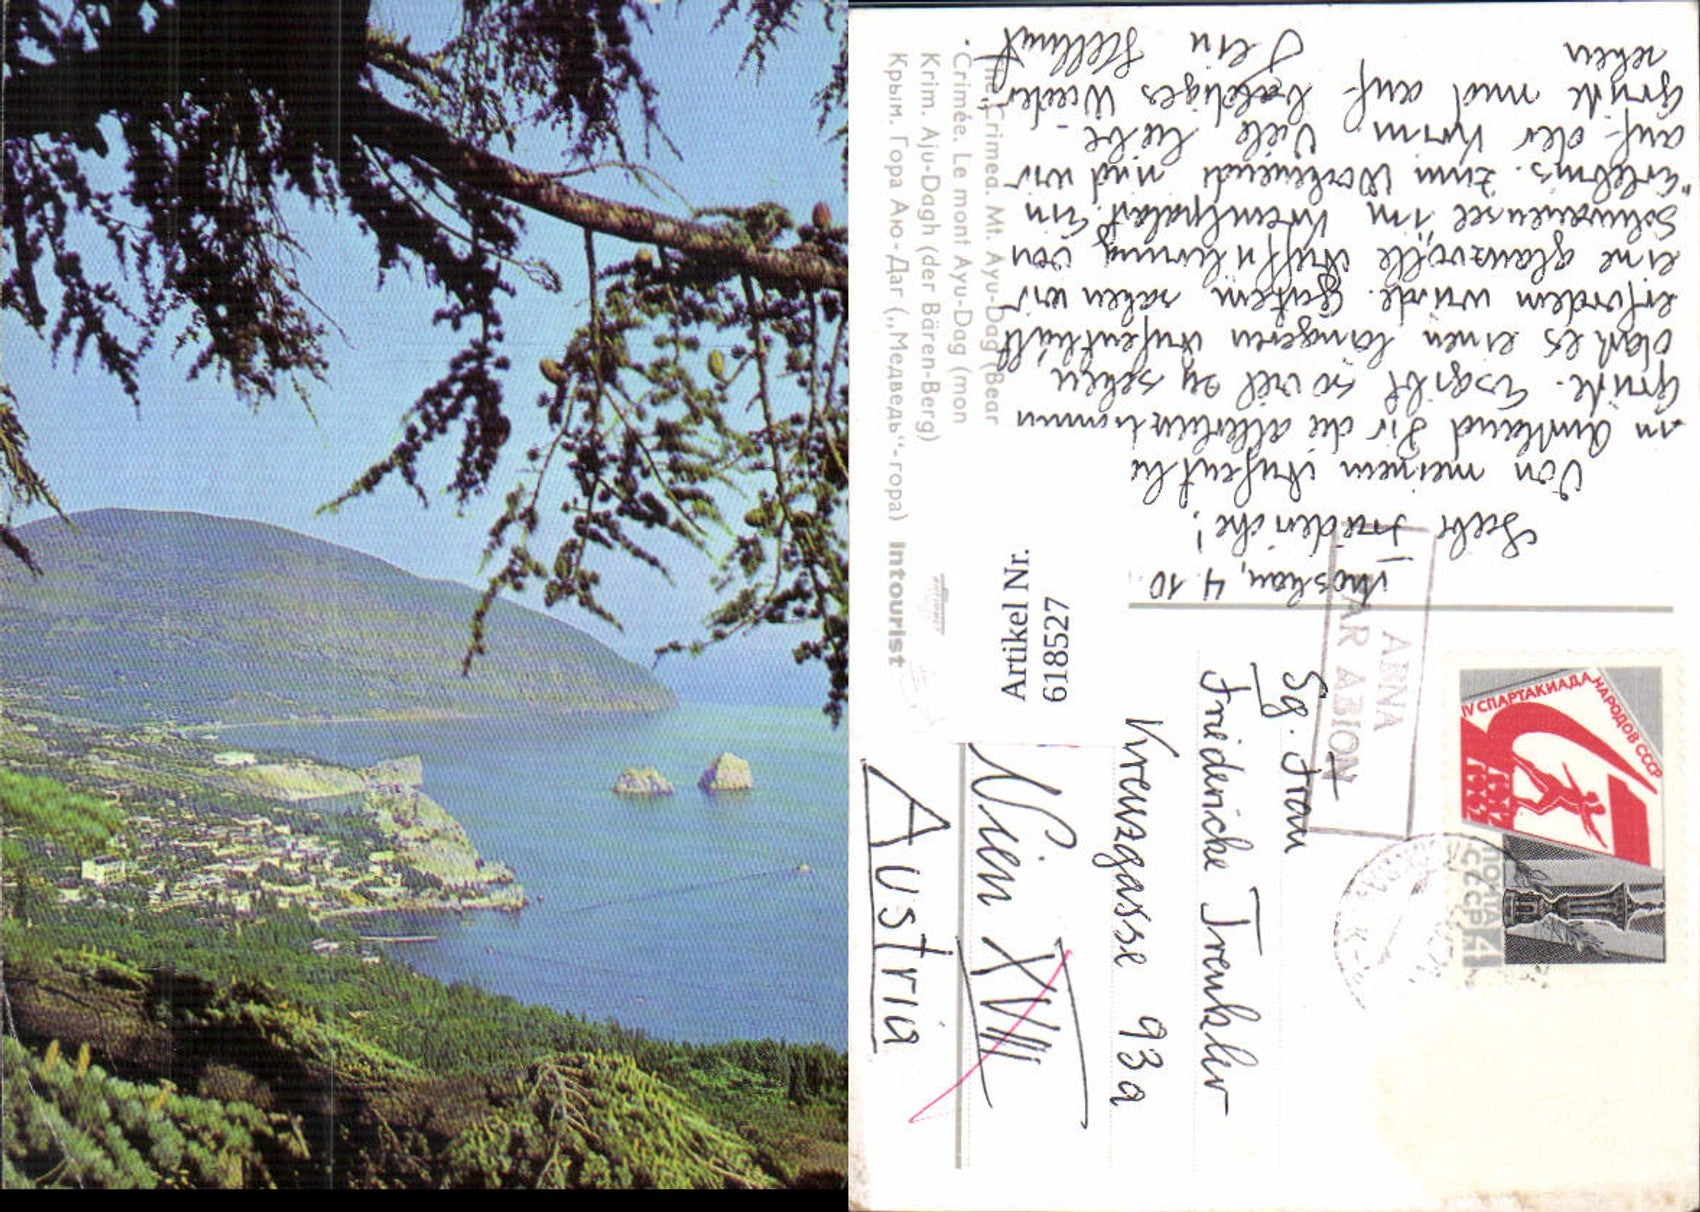 Крым. Гора Аю-Даг („Медведь“-гора)
Krim. Aju-Dagh (der Bären-Berg)
Crimée. Le mont Ayu-Dag (mon
The Crimea. Mt. Ayu-Dag (Bear
Intourist
Artikel Nr.
6185527
Moskau, 4.10
Liebe Friederiche!
Von meinem Aufenthalt
in Rußland Dir die allerherz
Grüße. Es gibt so viel zu sehen
daß es einen längeren Aufenthalt
erfordern würde. Gestern sahen wir
eine glanzvolle Aufführung von
Schwanensee im Kremlpalast. Ein
Erlebnis. Zum Wochenende sind wir
auf der Krim. Viele liebe
Grüße und auf baldiges Wieder-
sehen
Dein Hellmut
Sg. Frau
Friederiche Trenkler
Kreuzgasse 93a
Wien XVIII
Austria
АВИА
PAR AVION
IV СПАРТАКИАДА НАРОДОВ СССР
1967
ПОЧТА
СССР
4
МОСКВА